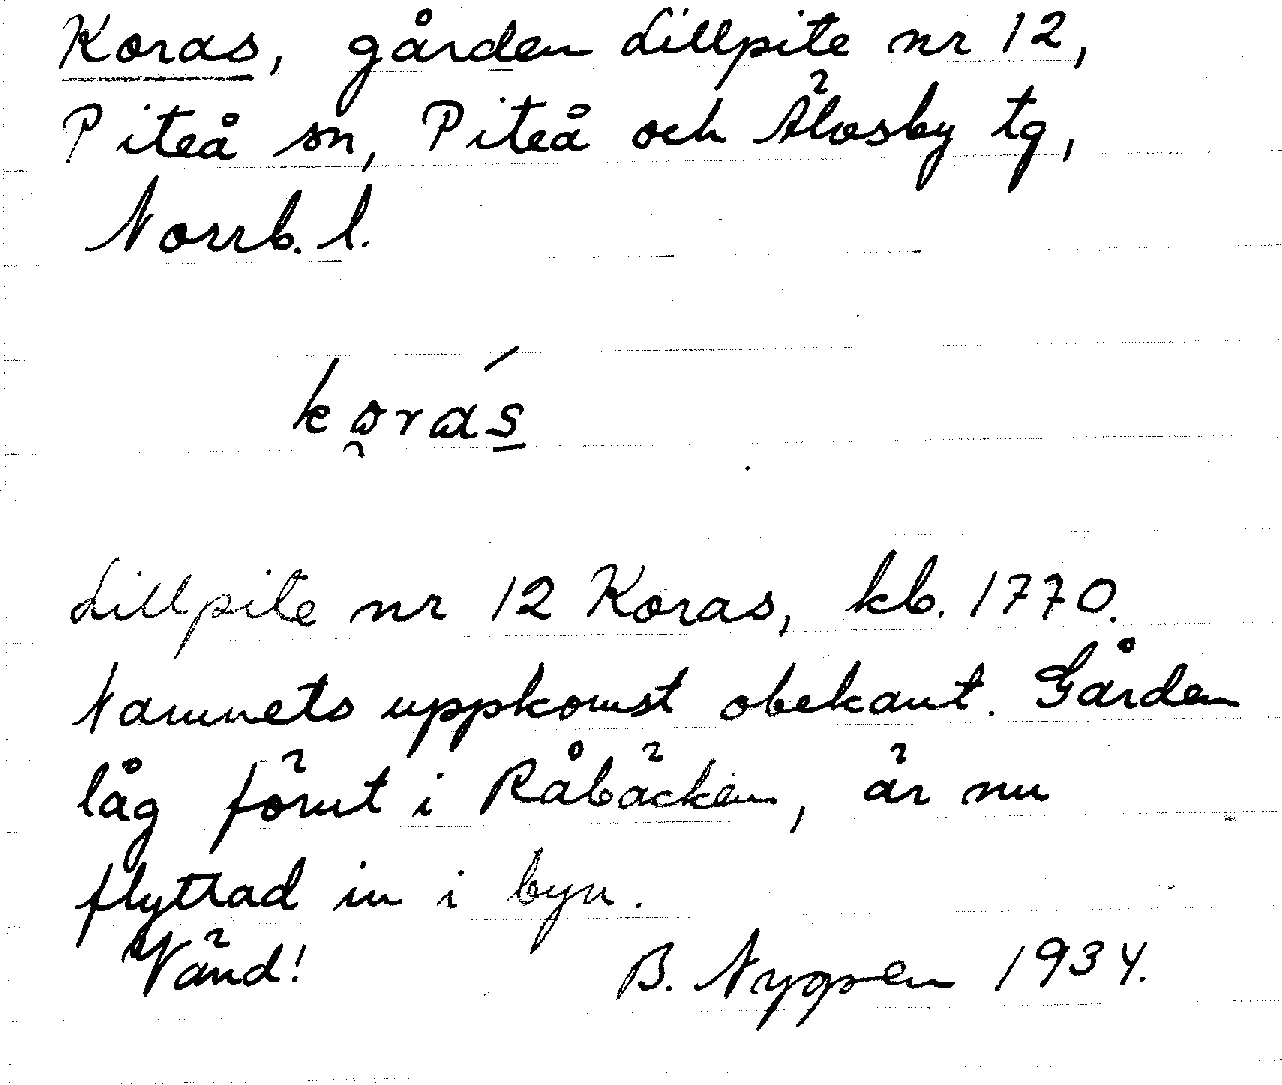 Koras, gården Lillpite nr 12,
Piteå sn, Piteå och Älvsby tg,
Norrb. l.
ko̯rás̠
Lillpite nr 12 Koras, kb. 1770.
Namnets uppkomst obekant. Gården
låg förut i Råbäcken, är nu
flyttad in i byn.
Vänd! B. Nygren 1934.